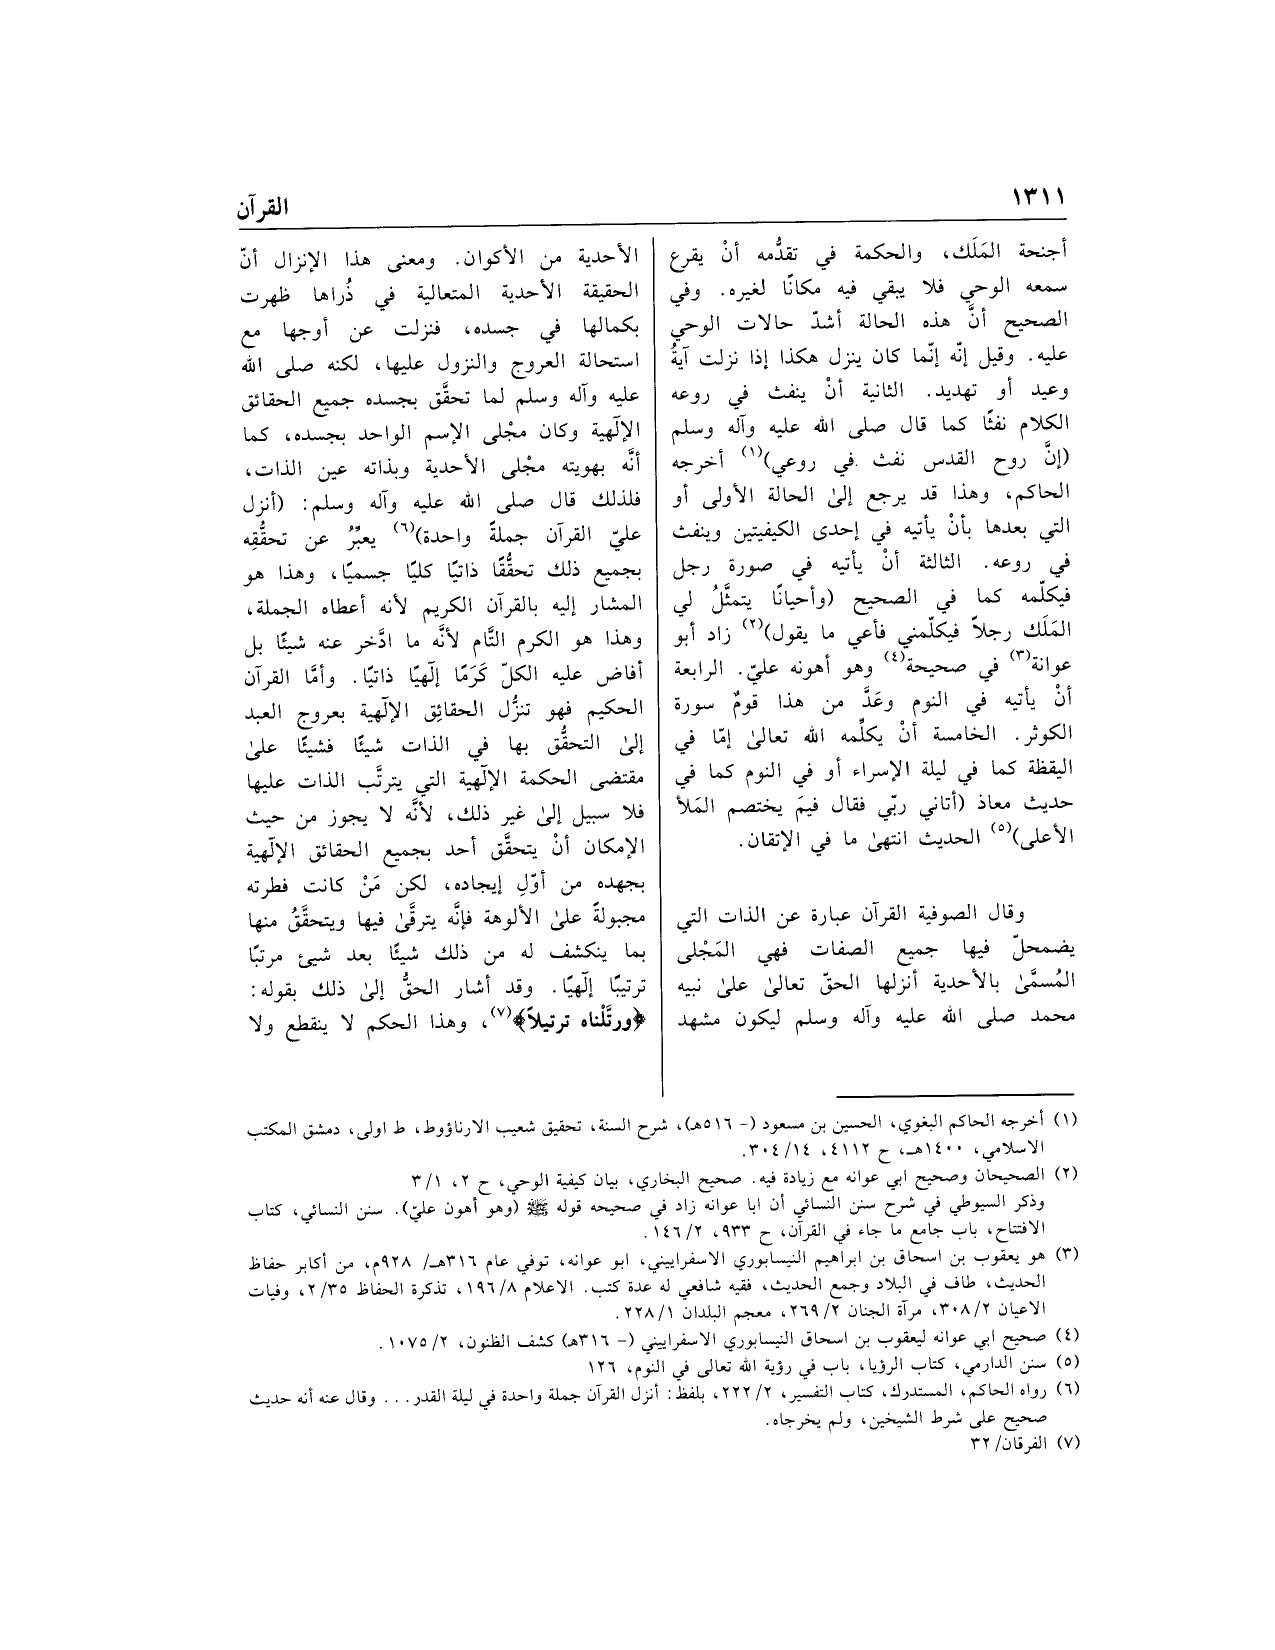 ١٣١١
القرآن
أجنحة المَلَك، والحكمة في تقدُّمه أنْ يقرع
سمعه الوحي فلا يبقي فيه مكانًا لغيره. وفي
الصحيح أنَّ هذه الحالة أشدّ حالات الوحي
عليه. وقيل إنّه إنّما كان ينزل هكذا إذا نزلت آيةُ
وعيد أو تهديد. الثانية أنْ ينفث في روعه
الكلام نفثًا كما قال صلى الله عليه وآله وسلم
(إنَّ روح القدس نفث في روعي)(١) أخرجه
الحاكم، وهذا قد يرجع إلىٰ الحالة الأولى أو
التي بعدها بأنْ يأتيه في إحدى الكيفيتين وينفث
في روعه. الثالثة أنْ يأتيه في صورة رجل
فيكلّمه كما في الصحيح (وأحيانًا يتمثَّلُ لي
المَلَك رجلاً فيكلّمني فأعي ما يقول)(٢) زاد أبو
عوانة(٣) في صحيحة(٤) وهو أهونه عليّ. الرابعة
أنْ يأتيه في النوم وعَدَّ من هذا قومٌ سورة
الكوثر. الخامسة أنْ يكلِّمه الله تعالىٰ إمّا في
اليقظة كما في ليلة الإسراء أو في النوم كما في
حديث معاذ (أتاني ربّي فقال فيمَ يختصم المَلأ
الأعلى)(٥) الحديث انتهىٰ ما في الإتقان.
وقال الصوفية القرآن عبارة عن الذات التي
يضمحلّ فيها جميع الصفات فهي المَجْلى
المُسمَّىٰ بالأحدية أنزلها الحقّ تعالىٰ علىٰ نبيه
محمد صلى الله عليه وآله وسلم ليكون مشهد
الأحدية من الأكوان. ومعنى هذا الإنزال أنّ
الحقيقة الأحدية المتعالية في ذُراها ظهرت
بكمالها في جسده، فنزلت عن أوجها مع
استحالة العروج والنزول عليها، لكنه صلى الله
عليه وآله وسلم لما تحقَّق بجسده جميع الحقائق
الإلٓهية وكان مجْلى الإسم الواحد بجسده، كما
أنَّه بهويته مجْلى الأحدية وبذاته عين الذات،
فلذلك قال صلى الله عليه وآله وسلم: (أنزل
عليّ القرآن جملةً واحدة)(٦) يعبِّرُ عن تحقُّقِه
بجميع ذلك تحقُّقًا ذاتيًا كليًا جسميًا، وهذا هو
المشار إليه بالقرآن الكريم لأنه أعطاه الجملة،
وهذا هو الكرم التَّام لأنَّه ما ادَّخر عنه شيئًا بل
أفاض عليه الكلّ كَرَمًا إلٓهيًا ذاتيًا. وأمَّا القرآن
الحكيم فهو تنزُّل الحقائِق الإلٓهية بعروج العبد
إلىٰ التحقُّق بها في الذات شيئًا فشيئًا علىٰ
مقتضى الحكمة الإلٓهية التي يترتَّب الذات عليها
فلا سبيل إلىٰ غير ذلك، لأنَّه لا يجوز من حيث
الإمكان أنْ يتحقَّق أحد بجميع الحقائق الإلٓهية
بجهده من أوّلِ إيجاده، لكن مَنْ كانت فطرته
مجبولةً علىٰ الألوهة فإنَّه يترقَّىٰ فيها ويتحقَّقُ منها
بما ينكشف له من ذلك شيئًا بعد شيئ مرتبًا
ترتيبًا إلٓهيًا. وقد أشار الحقُّ إلىٰ ذلك بقوله:
﴿ورتَّلْناه ترتيلاً﴾(٧)، وهذا الحكم لا ينقطع ولا
(١) أخرجه الحاكم البغوي، الحسين بن مسعود (- ٥١٦هـ)، شرح السنة، تحقيق شعيب الارناؤوط، ط اولى، دمشق المكتب
الاسلامي، ١٤٠٠هـ، ح ٤١١٢، ١٤/ ٣٠٤.
(٢) الصحيحان وصحيح ابي عوانه مع زيادة فيه. صحيح البخاري، بيان كيفية الوحي، ح ٢، ١/ ٣
وذكر السيوطي في شرح سنن النسائي أن ابا عوانه زاد في صحيحه قوله ﷺ (وهو أهون عليّ). سنن النسائي، كتاب
الافتتاح، باب جامع ما جاء في القرآن، ح ٩٣٣، ٢/ ١٤٦.
(٣) هو يعقوب بن اسحاق بن ابراهيم النيسابوري الاسفراييني، ابو عوانه، توفي عام ٣١٦هـ/ ٩٢٨م، من أكابر حفاظ
الحديث، طاف في البلاد وجمع الحديث، فقيه شافعي له عدة كتب. الاعلام ٨/ ١٩٦، تذكرة الحفاظ ٢/٣٥، وفيات
الاعيان ٢/ ٣٠٨، مرآة الجنان ٢/ ٢٦٩، معجم البلدان ١/ ٢٢٨.
(٤) صحيح ابي عوانه ليعقوب بن اسحاق النيسابوري الاسفراييني (- ٣١٦هـ) كشف الظنون، ٢/ ١٠٧٥.
(٥) سنن الدارمي، كتاب الرؤيا، باب في رؤية الله تعالى في النوم، ١٢٦
(٦) رواه الحاكم، المستدرك، كتاب التفسير، ٢/ ٢٢٢، بلفظ: أنزل القرآن جملة واحدة في ليلة القدر... وقال عنه أنه حديث
صحيح على شرط الشيخين، ولم يخرجاه.
(٧) الفرقان/ ٣٢